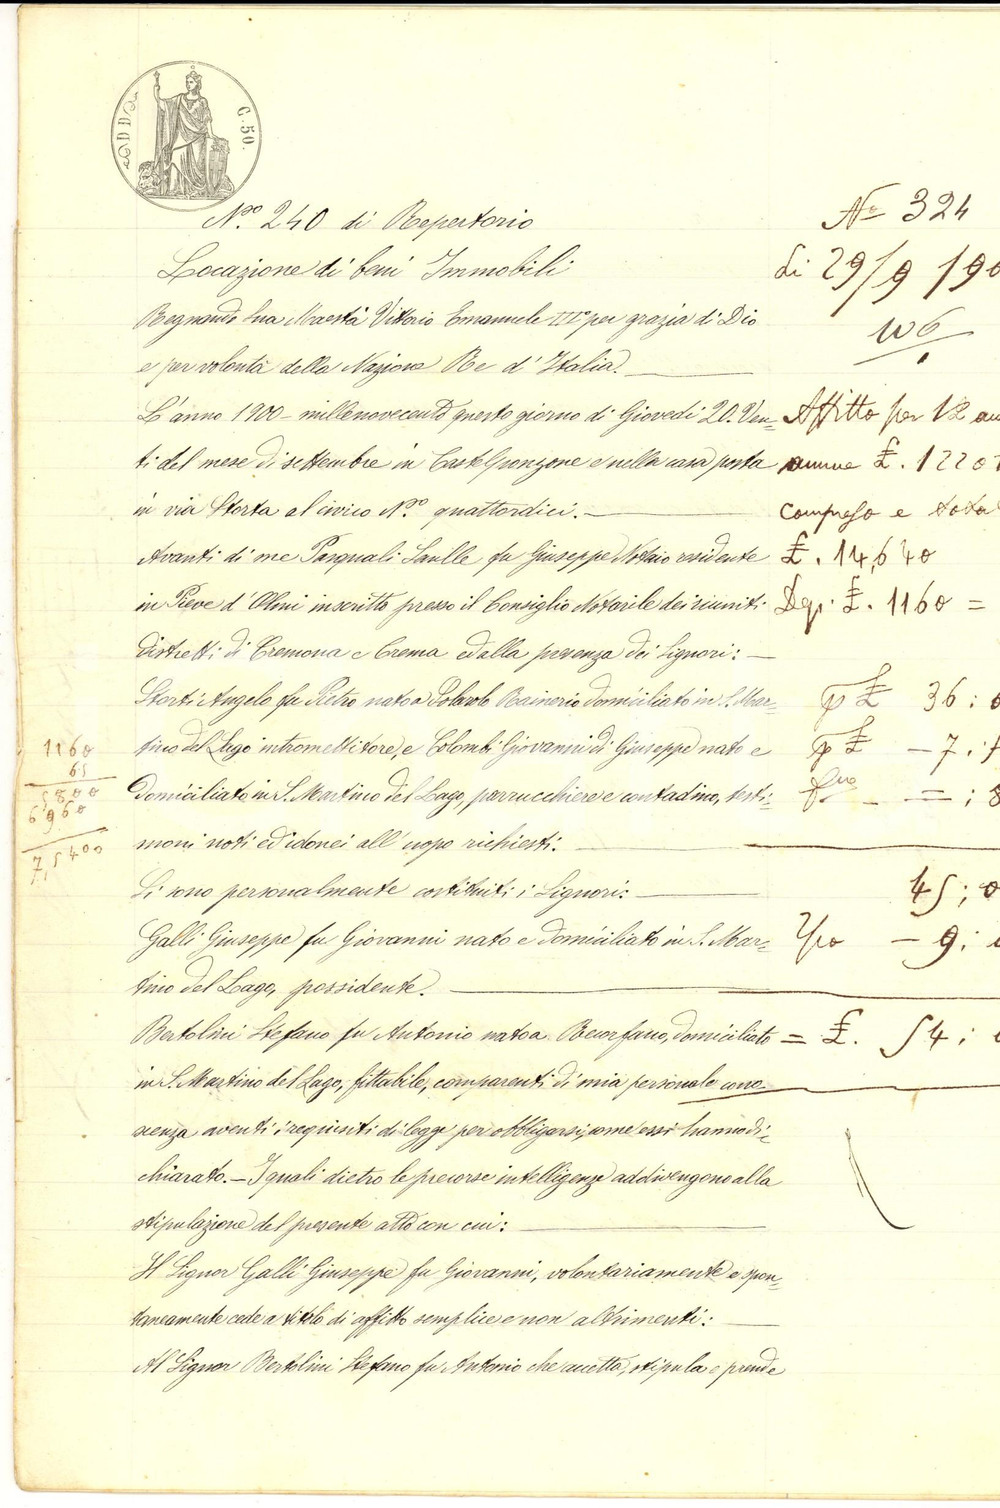 C. 50.
N.º 240 di Repertorio
Locazione di beni Immobili
Regnando Sua Maestà Vittorio Emanuele IIIº per grazia di Dio
e per volontà della Nazione Re d'Italia.
L'anno 1900 - millenovecento questo giorno di Giovedì 20. Ven-
ti del mese di settembre in Castelponzone e nella casa posta
in via Storta al civico N.º quattordici.
Avanti di me Pasquali Saulle fu Giuseppe Notaio residente
in Pieve d'Olmi inscritto presso il Consiglio Notarile dei riuniti
distretti di Cremona e Crema ed alla presenza dei Signori:
Storti Angelo fu Pietro nato a Solarolo Rainerio domiciliato in S. Mar-
tino del Lago intromettitore, e Colombi Giovanni di Giuseppe nato e
domiciliato in S. Martino del Lago, parrucchiere e contadino, testi-
moni noti ed idonei all'uopo richiesti.
Si sono personalmente costituiti i Signori:
Galli Giuseppe fu Giovanni nato e domiciliato in S. Mar-
tino del Lago, possidente.
Bertolini Stefano fu Antonio nato a Recorfano, domiciliato
in S. Martino del Lago, fittabile, comparenti di mia personale cono-
scenza aventi i requisiti di legge per obbligarsi, come essi hanno di-
chiarato. - I quali dietro le precorse intelligenze addivengono alla
stipulazione del presente atto con cui:
Il Signor Galli Giuseppe fu Giovanni, volontariamente e spon-
taneamente cede a titolo di affitto semplice e non altrimenti:
Al Signor Bertolini Stefano fu Antonio che accetta, stipula e prende
Nº 324
Li 29/9 190
Affitto per 12 an
annue £. 1220
compreso e tota
£. 14640
Dep. £. 1160 =
p £ 36:0
p £ - 7:
= : 8
45; 0
- 9:
= £. 54;
1160
65
5800
6960
75400